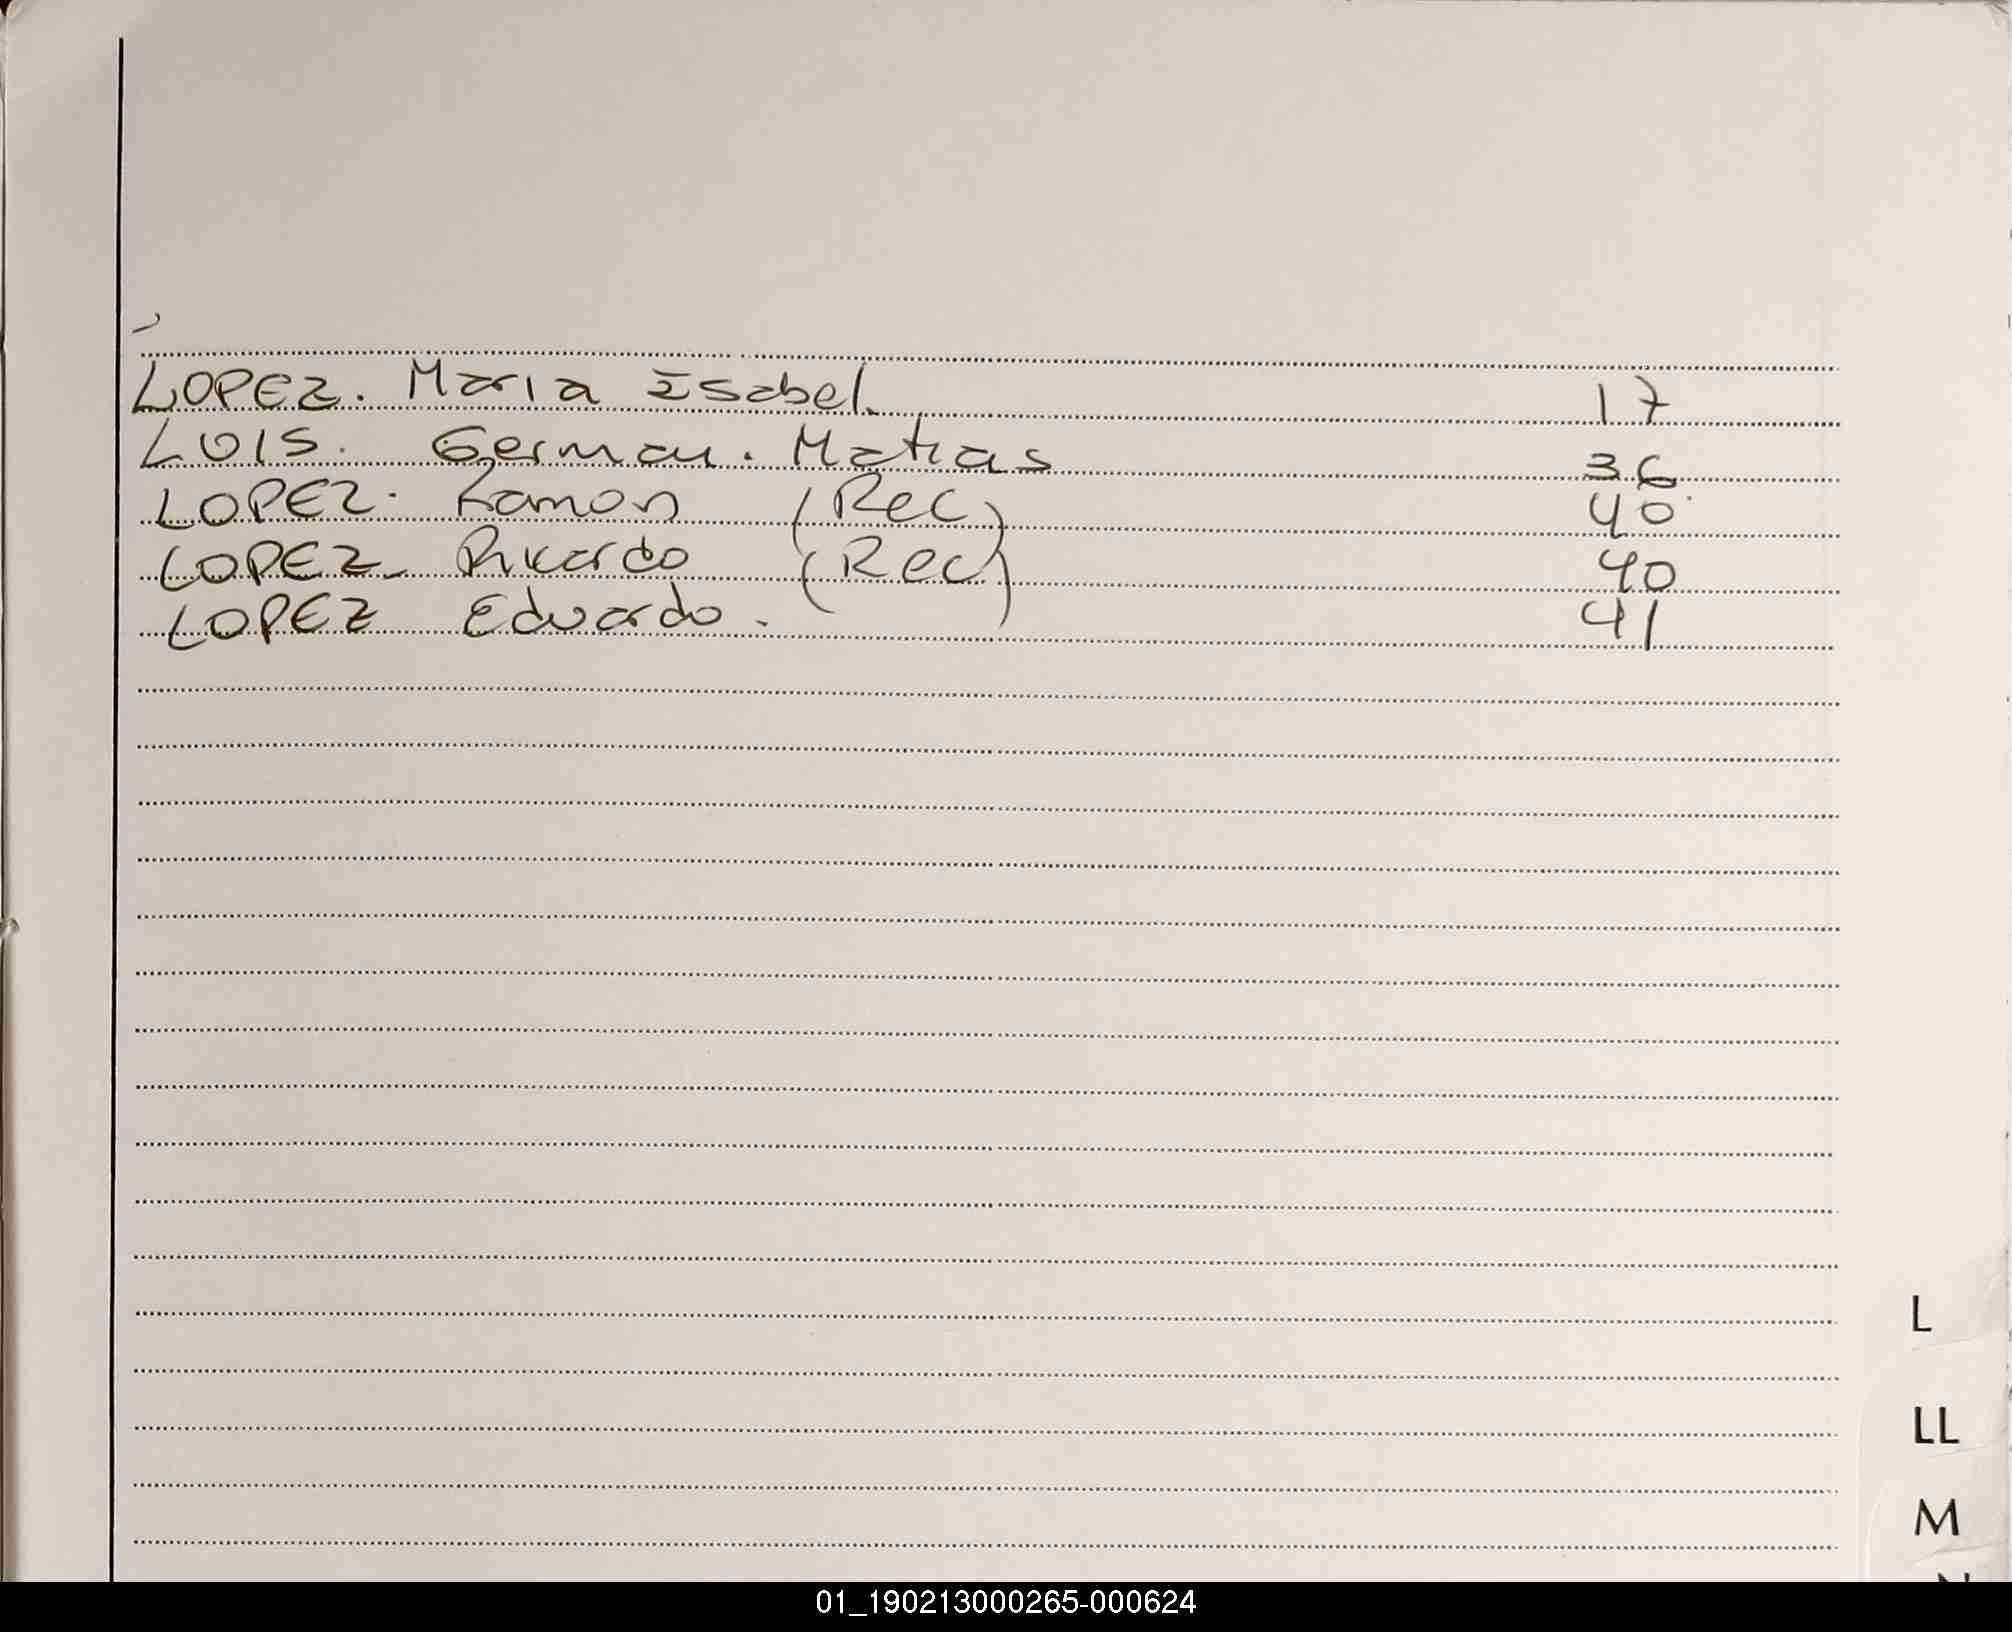 LOPEZ. Maria Isabel. 17
LUIS. German. Matias 36
LOPEZ. Ramon (Rec) 40
LOPEZ. Ricardo (Rec) 40
LOPEZ Eduardo. 41
L
LL
M
01_190213000265-000624